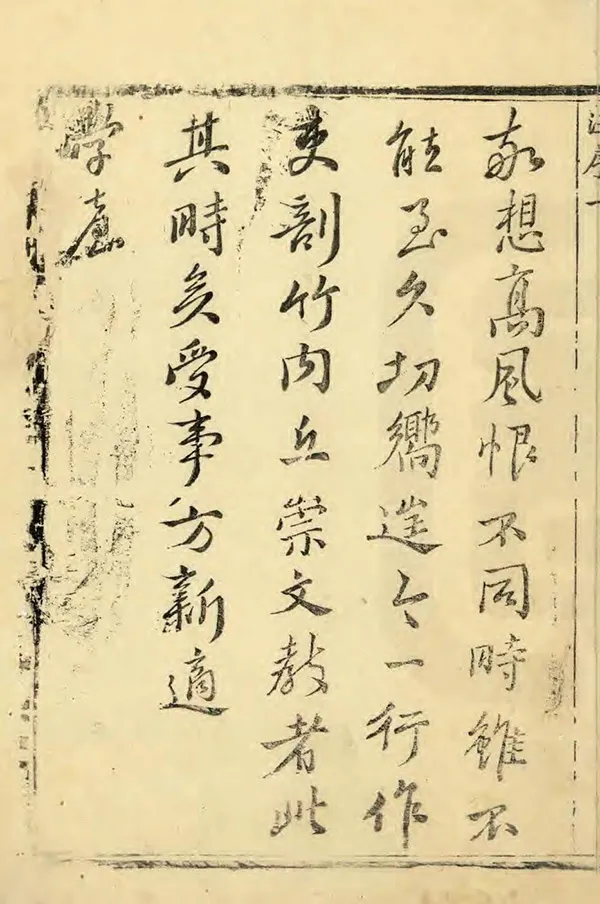 想高風恨不同時雖不
能至久切嚮今一行作
吏剖竹内丘崇文教者此
其時矣受事方新適
学臺